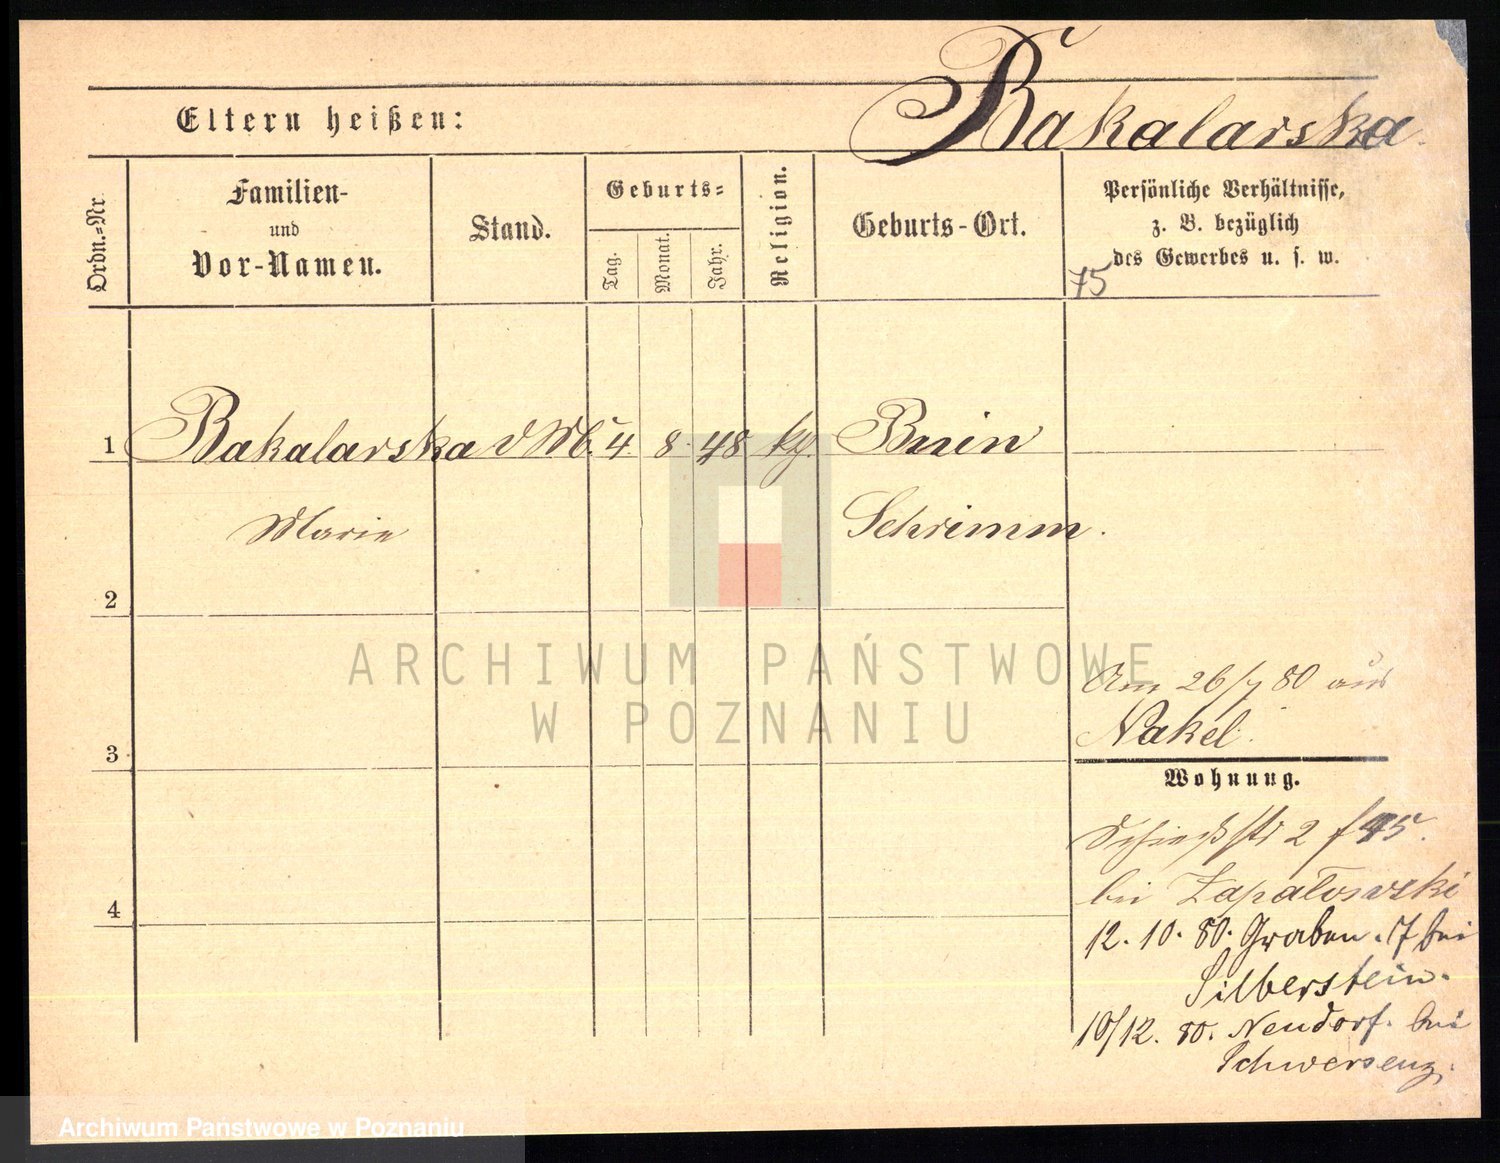 Bakalarska.
Eltern heißen:
Ordn.=Nr
Familien-
und
Vor-Namen.
Stand.
Geburts=
Tag.
Monat.
Jahr.
Religion.
Geburts-Ort.
Persönliche Verhältnisse,
z. B. bezüglich
des Gewerbes u. s. w.
75
1 Bakalarska 4. 8. 48 Bnin
Marie Schrimm.
2
Am 26/7 80 aus
Nakel.
3
Wohnung.
Schießstr 2
bei Zapałowski
4
12. 10. 80. Graben. 7 bei
Silberstein.
10/12. 80. Neudorf. bei
Schwersenz.
ARCHIWUM PAŃSTWOWE
W POZNANIU
Archiwum Państwowe w Poznaniu